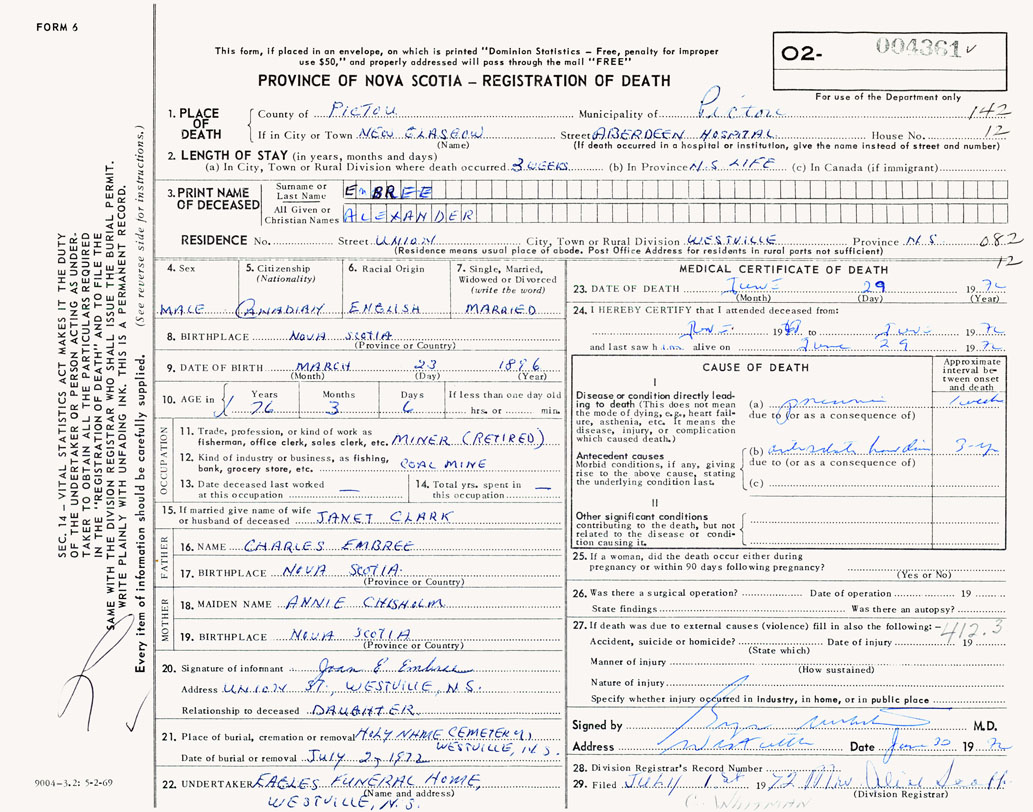 FORM 6
This form, if placed in an envelope, on which is printed "Dominion Statistics – Free, penalty for improper
use $50," and properly addressed will pass through the mail "FREE"
PROVINCE OF NOVA SCOTIA – REGISTRATION OF DEATH
O2- 004361
For use of the Department only
SEC. 14 – VITAL STATISTICS ACT MAKES IT THE DUTY
OF THE UNDERTAKER OR PERSON ACTING AS UNDER-
TAKER TO OBTAIN ALL THE PARTICULARS REQUIRED
IN THE "REGISTRATION OF DEATH" AND TO FILE THE
SAME WITH THE DIVISION REGISTRAR WHO SHALL ISSUE THE BURIAL PERMIT.
WRITE PLAINLY WITH UNFADING INK. THIS IS A PERMANENT RECORD.
Every item of information should be carefully supplied. (See reverse side for instructions.)
1. PLACE OF DEATH
County of PICTOU Municipality of Pictou 142
If in City or Town NEW GLASGOW Street ABERDEEN HOSPITAL House No. 12
(Name) (If death occurred in a hospital or institution, give the name instead of street and number)
2. LENGTH OF STAY (in years, months and days)
(a) In City, Town or Rural Division where death occurred 3 WEEKS (b) In Province N.S LIFE (c) In Canada (if immigrant)
3. PRINT NAME OF DECEASED
Surname or Last Name EMBREE
All Given or Christian Names ALEXANDER
RESIDENCE No. Street UNION City, Town or Rural Division WESTVILLE Province N.S. 082
(Residence means usual place of abode. Post Office Address for residents in rural parts not sufficient) 12
4. Sex
MALE
5. Citizenship (Nationality)
CANADIAN
6. Racial Origin
ENGLISH
7. Single, Married, Widowed or Divorced (write the word)
MARRIED
8. BIRTHPLACE NOVA SCOTIA
(Province or Country)
9. DATE OF BIRTH MARCH 23 1896
(Month) (Day) (Year)
10. AGE in Years Months Days If less than one day old
76 3 6 hrs. or min.
OCCUPATION
11. Trade, profession, or kind of work as
fisherman, office clerk, sales clerk, etc. MINER (RETIRED)
12. Kind of industry or business, as fishing,
bank, grocery store, etc. COAL MINE
13. Date deceased last worked
at this occupation —
14. Total yrs. spent in
this occupation —
15. If married give name of wife
or husband of deceased JANET CLARK
FATHER
16. NAME CHARLES EMBREE
17. BIRTHPLACE NOVA SCOTIA
(Province or Country)
MOTHER
18. MAIDEN NAME ANNIE CHISHOLM
19. BIRTHPLACE NOVA SCOTIA
(Province or Country)
20. Signature of informant Joan E Embree
Address UNION ST., WESTVILLE, N.S.
Relationship to deceased DAUGHTER
21. Place of burial, cremation or removal HOLY NAME CEMETERY,
WESTVILLE, N.S.
Date of burial or removal JULY 2, 1972
22. UNDERTAKER EAGLES FUNERAL HOME,
(Name and address)
WESTVILLE, N.S.
9004–3.2: 5-2-69
MEDICAL CERTIFICATE OF DEATH
23. DATE OF DEATH June 29 1972
(Month) (Day) (Year)
24. I HEREBY CERTIFY that I attended deceased from:
19 to June 1972
and last saw him alive on June 29 1972
CAUSE OF DEATH
Approximate interval between onset and death
I
Disease or condition directly lead-
ing to death (This does not mean
the mode of dying, e.g., heart fail-
ure, asthenia, etc. It means the
disease, injury, or complication
which caused death.)
(a) 1 week
due to (or as a consequence of)
Antecedent causes
Morbid conditions, if any, giving
rise to the above cause, stating
the underlying condition last.
(b)
due to (or as a consequence of)
(c)
II
Other significant conditions
contributing to the death, but not
related to the disease or condi-
tion causing it.
25. If a woman, did the death occur either during
pregnancy or within 90 days following pregnancy?
(Yes or No)
26. Was there a surgical operation? Date of operation 19
State findings Was there an autopsy?
27. If death was due to external causes (violence) fill in also the following:– 412.3
Accident, suicide or homicide? Date of injury 19
(State which)
Manner of injury
(How sustained)
Nature of injury
Specify whether injury occurred in industry, in home, or in public place
Signed by M.D.
Address Westville Date June 30 1972
28. Division Registrar's Record Number
29. Filed July 1st 1972 Mrs. Alice Scott
(Division Registrar)
C. WHITMAN